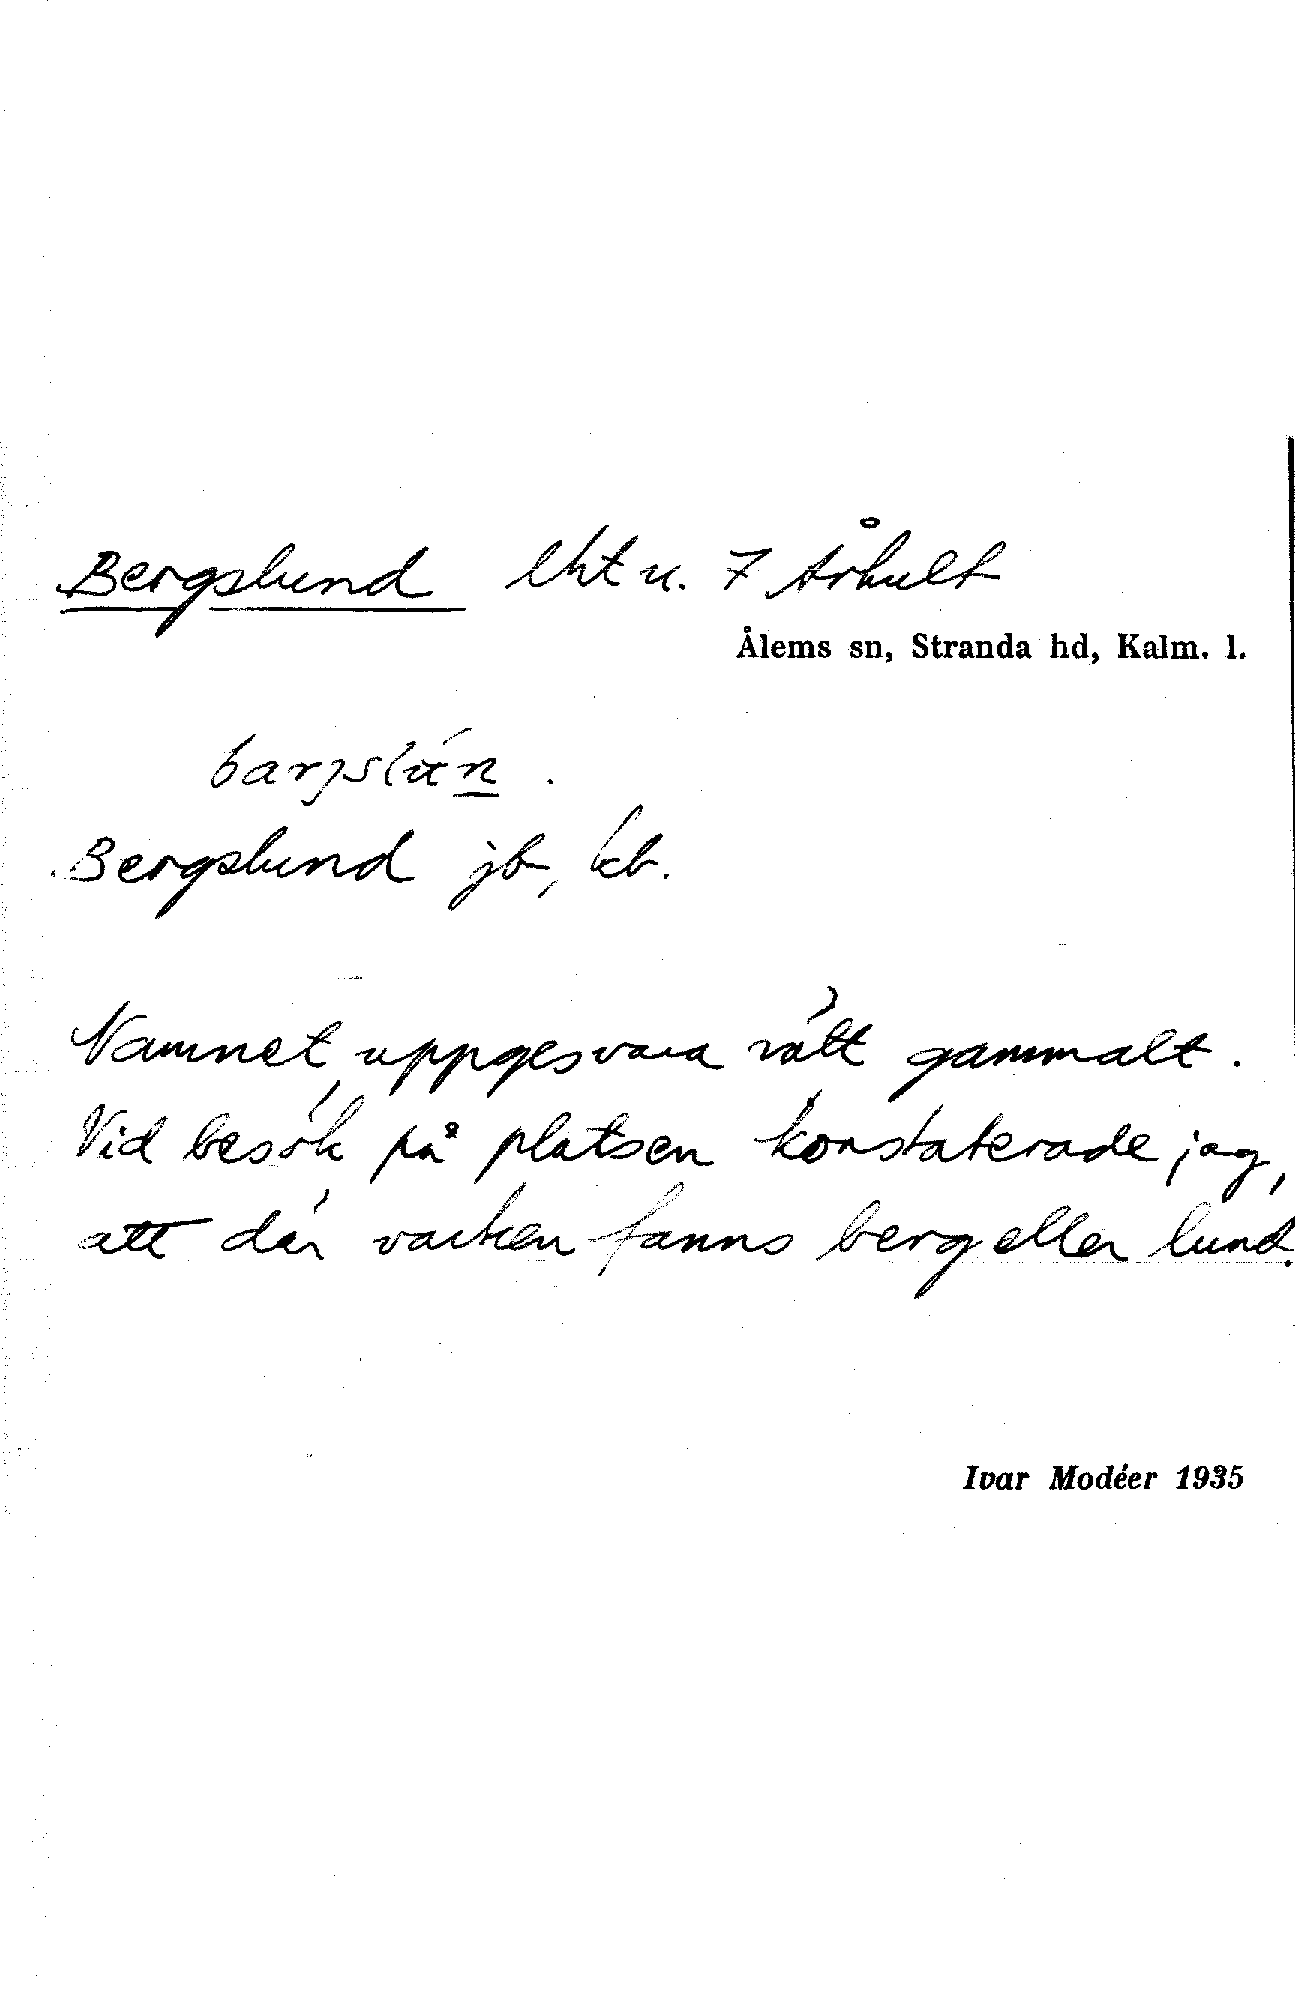 Bergslund lht u. 7 Århult
Ålems sn, Stranda hd, Kalm. l.
Bergslund jb, kb.
Namnet uppges vara rätt gammalt.
Vid besök på platsen konstaterade jag,
att där varken fanns berg eller lund.
Ivar Modéer 1935